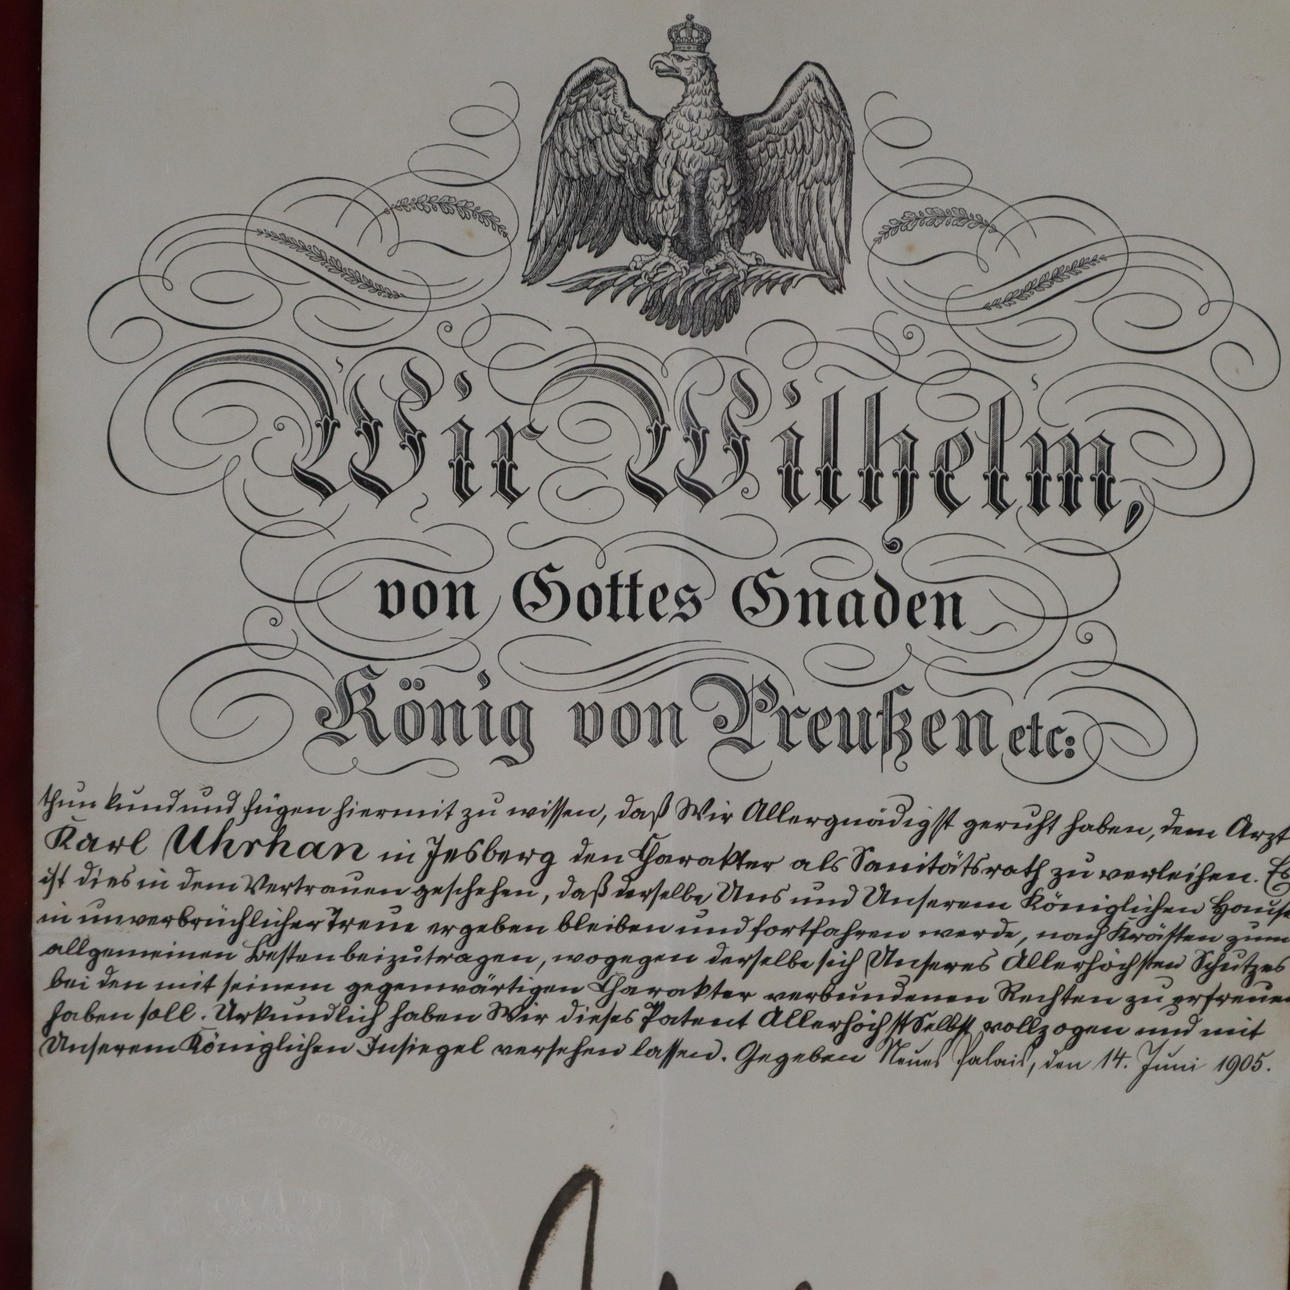 Wir Wilhelm,
von Gottes Gnaden
König von Preußen etc:
thun kund und fügen hiermit zu wissen, daß Wir Allergnädigst geruht haben, dem Arzt
Karl Uhrhan in Jesberg den Charakter als Sanitätsrath zu verleihen. Es
ist dies in dem Vertrauen geschehen, daß derselbe Uns und Unserem Königlichen Hause
in unverbrüchlicher Treue ergeben bleiben und fortfahren werde, nach Kräften zum
allgemeinen Besten beizutragen, wogegen derselbe sich Unseres Allerhöchsten Schutzes
bei den mit seinem gegenwärtigen Charakter verbundenen Rechten zu erfreuen
haben soll. Urkundlich haben Wir dieses Patent Allerhöchst Selbst vollzogen und mit
Unserem Königlichen Insiegel versehen lassen. Gegeben Neues Palais, den 14. Juni 1905.